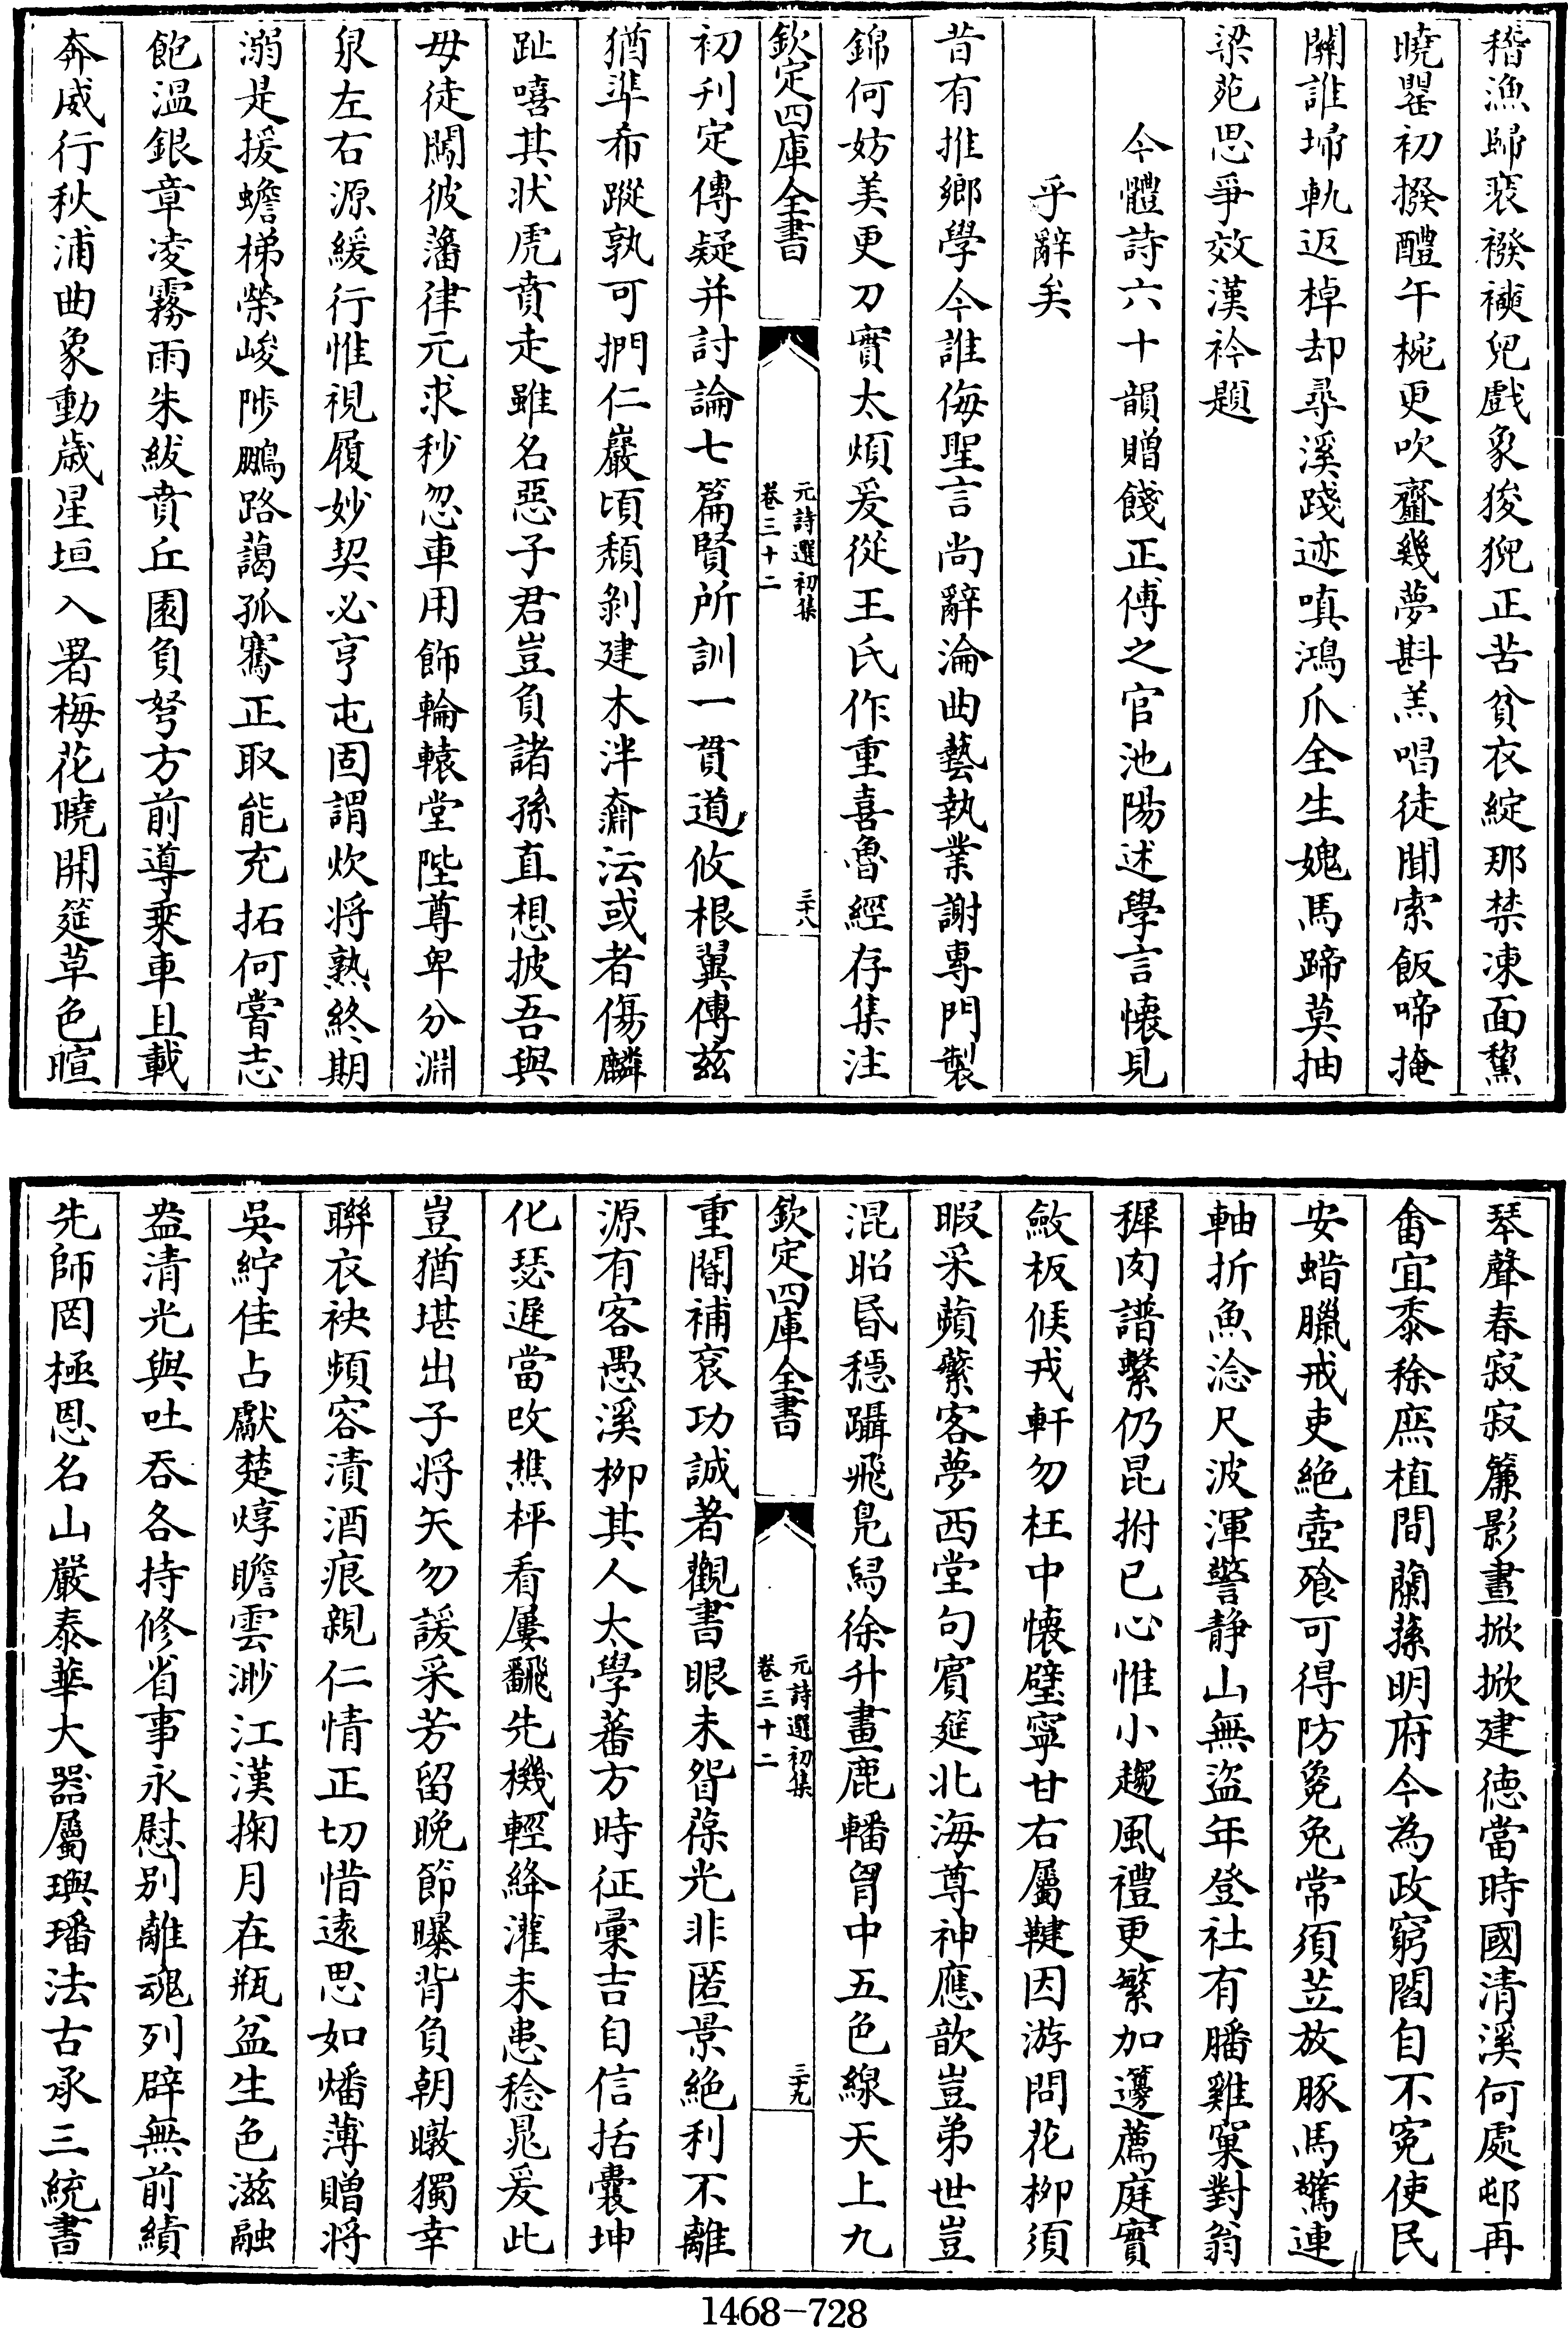 稽漁歸裘襏襫兒戲象狻猊正苦貧衣綻那禁凍面黧
曉罌初撥醴午椀更吹虀幾夢斟羔唱徒聞索飯啼掩
關誰埽軌返棹却尋溪踐迹嗔鴻爪全生媿馬蹄莫抽
梁苑思爭效漢衿題
今體詩六十韻贈餞正傳之官池陽述學言懷見
乎辭矣
昔有推鄉學今誰侮聖言尚辭淪曲藝執業謝專門製
錦何妨美更刀實太煩爰從王氏作重喜魯經存集注
欽定四庫全書
元詩選初集
卷三十二
三十八
初刋定傳疑并討論七篇賢所訓一貫道攸根翼傳茲
猶準希蹤孰可捫仁巖頃頹剝建木泮齋沄或者傷麟
趾嘻其狀虎賁走雖名惡子君豈負諸孫直想披吾與
毋徒闖彼藩律元求秒忽車用飾輪轅堂陛尊卑分淵
泉左右源緩行惟視履妙契必亨屯固謂炊將熟終期
溺是援蟾梯榮峻陟鵬路藹孤騫正取能充拓何嘗志
飽温銀章凌霧雨朱紱賁丘園負弩方前導乘車且載
奔威行秋浦曲象動歲星垣入署梅花曉開筵草色暄
琴聲春寂寂簾影晝掀掀建德當時國清溪何處邨再
畬宜黍稌庶植間蘭蓀明府今為政窮閻自不寃使民
安蜡臘戒吏絶壺飱可得防冤免常須苙放豚馬驚連
軸折魚淰尺波渾警静山無盜年登社有膰雞窠對翁
穉肉譜繫仍昆拊己心惟小趨風禮更繁加籩薦庭實
斂板候戎軒勿枉中懷璧寧甘右屬鞬因游問花柳須
暇采蘋蘩客夢西堂句賓筵北海尊神應歆豈弟世豈
混昭昏穩躡飛鳬舄徐升畫鹿轓胷中五色線天上九
欽定四庫全書
元詩選初集
卷三十二
三十九
重閽補衮功誠著觀書眼未眢葆光非匿景絶利不離
源有客愚溪柳其人太學蕃方時征彚吉自信括囊坤
化瑟遲當改樵枰看屢飜先機輕絳灌未患稔晁爰此
豈猶堪出子將矢勿諼采芳留晚節曝背負朝暾獨幸
聯衣袂頻容漬酒痕親仁情正切惜逺思如燔薄贈將
吳紵佳占厭楚焞瞻雲渺江漢掬月在瓶盆生色滋融
盎清光與吐吞各持修省事永慰别離魂列辟無前績
先師罔極恩名山嚴泰華大器屬璵璠法古承三統書
1468-728